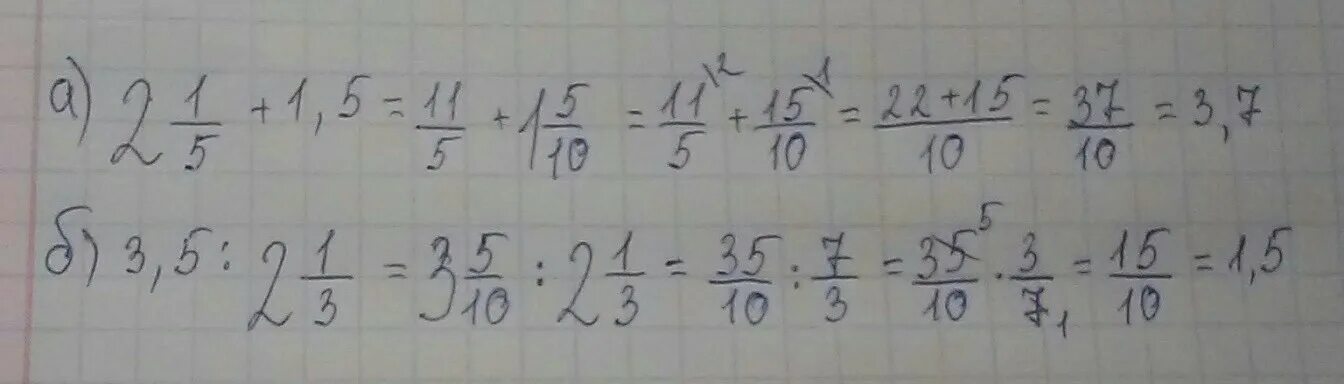 а) 2 1/5 + 1,5 = 11/5 + 1 5/10 = 11\2/5 + 15\1/10 = 22+15/10 = 37/10 = 3,7
б) 3,5 : 2 1/3 = 3 5/10 : 2 1/3 = 35/10 : 7/3 = 35 5/10 · 3/7 1 = 15/10 = 1,5